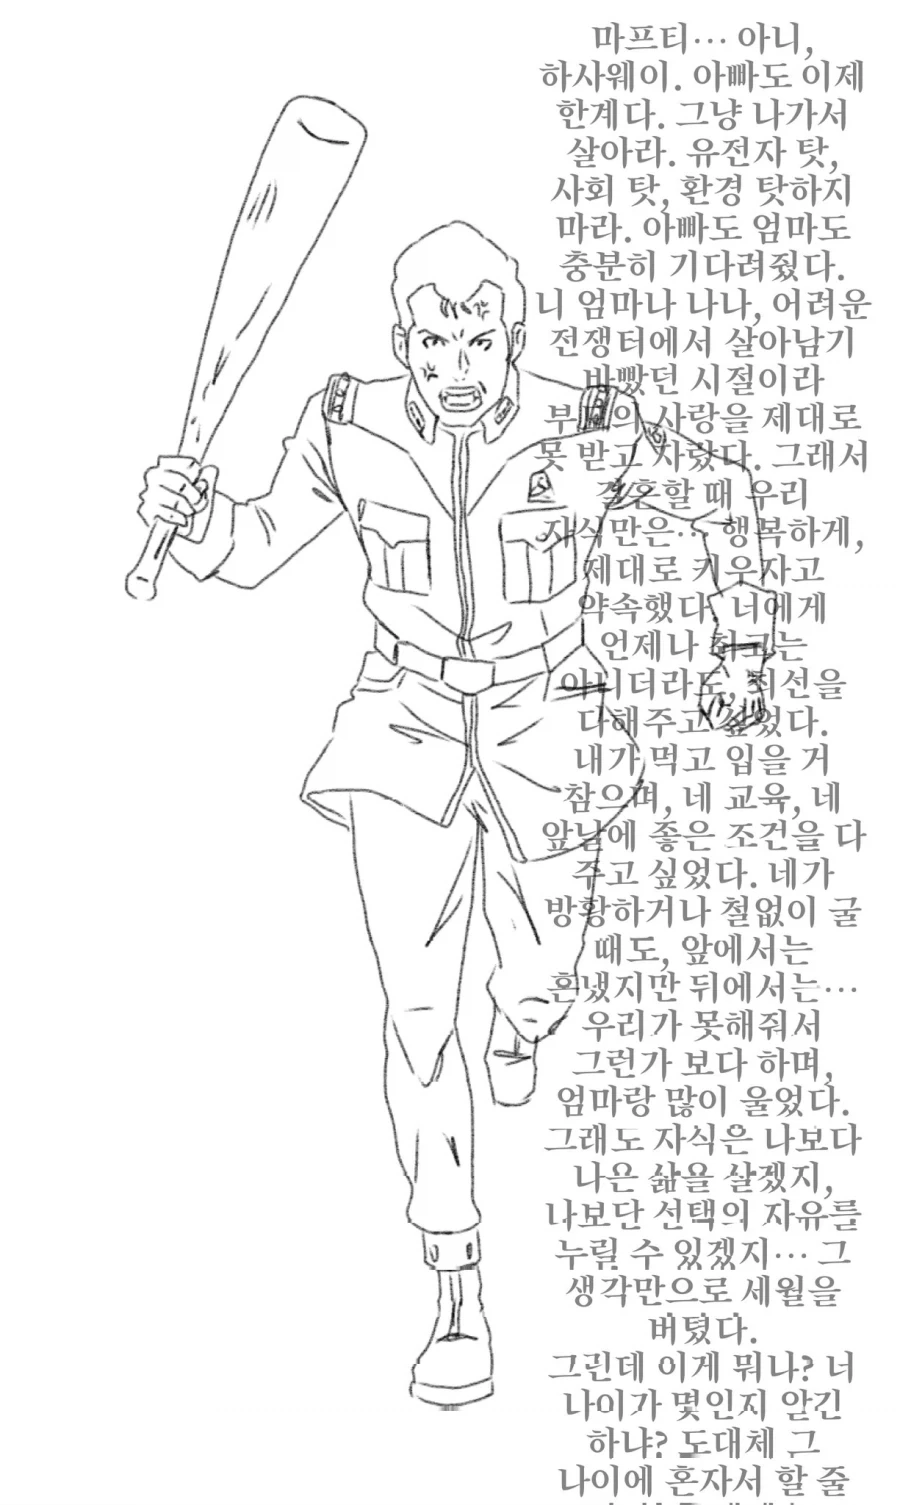 마프티… 아니,
하사웨이. 아빠도 이제
한계다. 그냥 나가서
살아라. 유전자 탓,
사회 탓, 환경 탓하지
마라. 아빠도 엄마도
충분히 기다려줬다.
니 엄마나 나나, 어려운
전쟁터에서 살아남기
바빴던 시절이라
부모의 사랑을 제대로
못 받고 자랐다. 그래서
결혼할 때 우리
자식만은… 행복하게,
제대로 키우자고
약속했다. 너에게
언제나 최고는
아니더라도, 최선을
다해주고 싶었다.
내가 먹고 입을 거
참으며, 네 교육, 네
앞날에 좋은 조건을 다
주고 싶었다. 네가
방황하거나 철없이 굴
때도, 앞에서는
혼냈지만 뒤에서는…
우리가 못해줘서
그런가 보다 하며,
엄마랑 많이 울었다.
그래도 자식은 나보다
나은 삶을 살겠지,
나보단 선택의 자유를
누릴 수 있겠지… 그
생각만으로 세월을
버텼다.
그런데 이게 뭐냐? 너
나이가 몇인지 알긴
하냐? 도대체 그
나이에 혼자서 할 줄